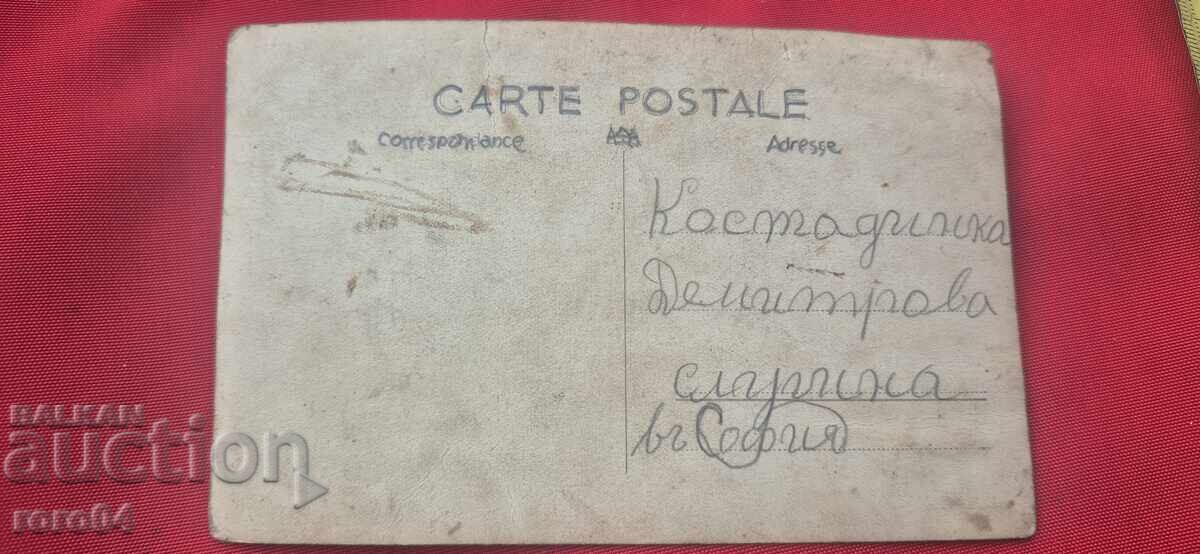 CARTE POSTALE
Correspondance
Adresse
Костадинка
Демитрова
въ София
BALKAN
auction
roro84